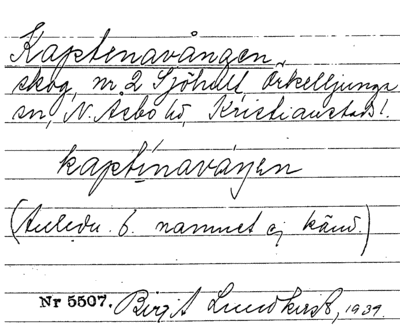 Kaptenavången
skog, nr 2 Sjöhult, Örkelljunga
sn, N. Åsbo hd, Kristianstads l.
kaptinavåŋen
(Anledn. t. namnet ej känd.)
Nr 5507. Birgit Lundkvist, 1939.